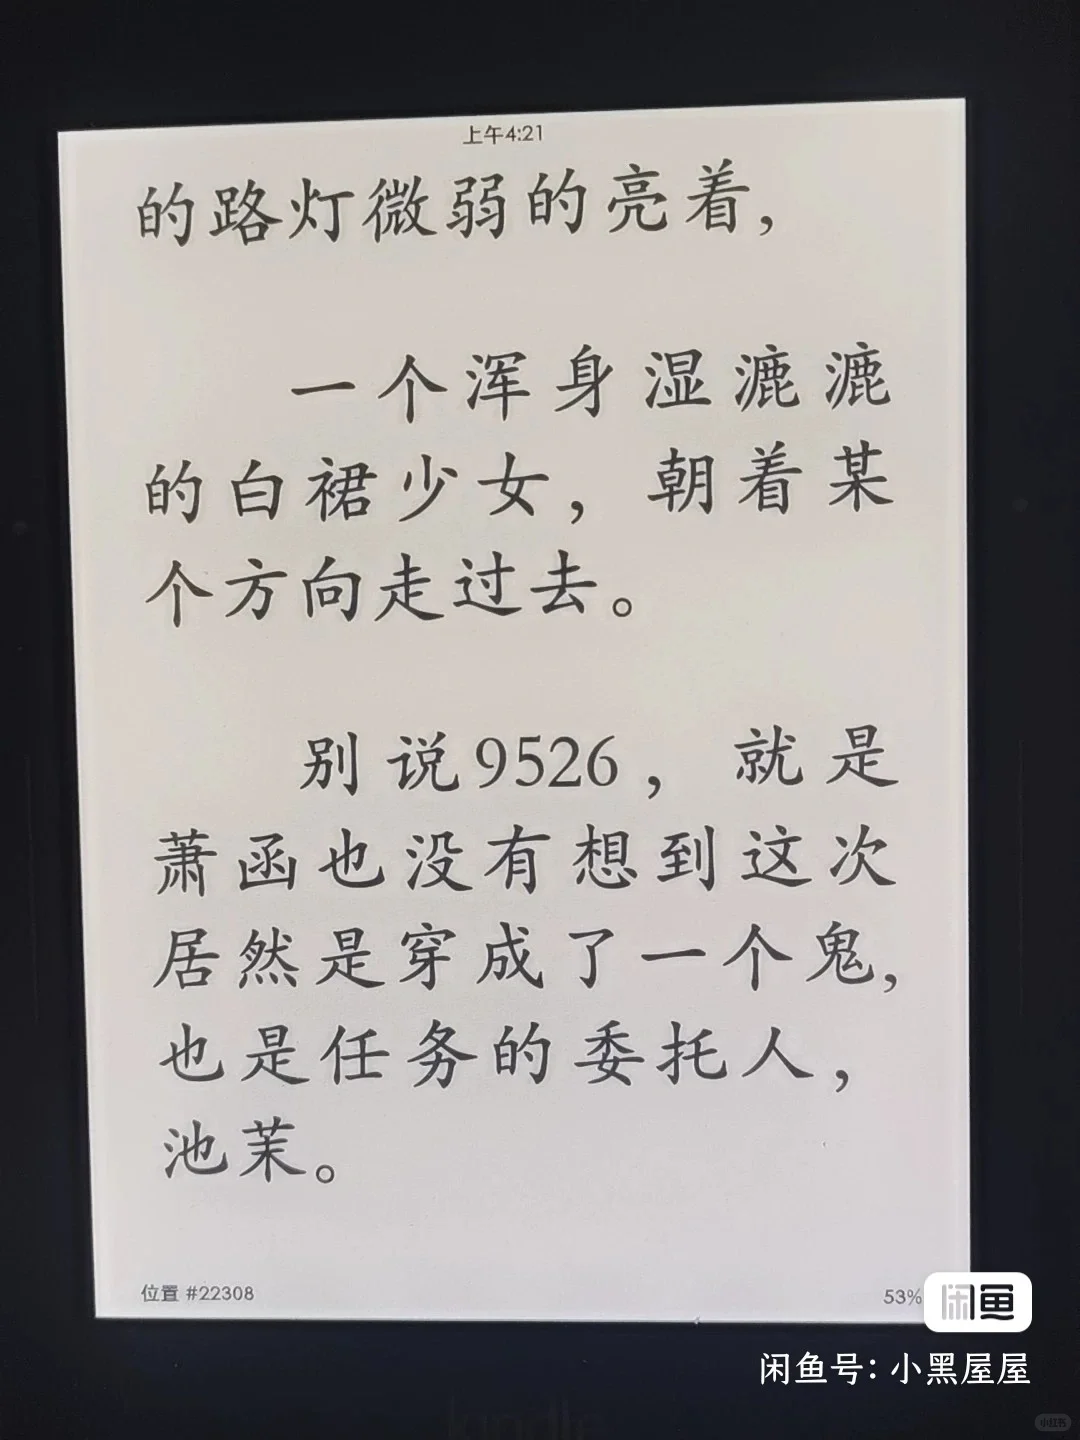 上午4:21
的路灯微弱的亮着，
一个浑身湿漉漉
的白裙少女，朝着某
个方向走过去。
别说9526，就是
萧函也没有想到这次
居然是穿成了一个鬼，
也是任务的委托人，
池茉。
位置 #22308
53%
闲鱼
闲鱼号：小黑屋屋
小红书